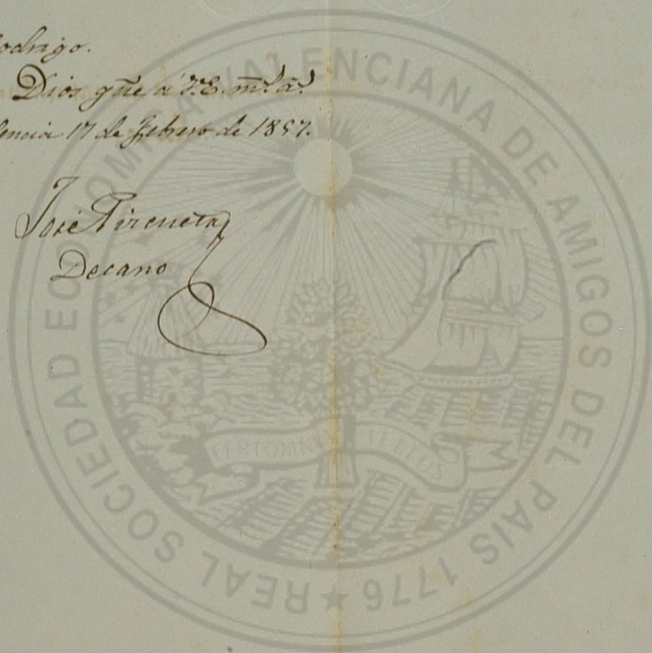 odrigo.
Dios gũe a V.E. m.s a.s
lencia 17 de Febrero de 1857.
José Pizcueta
Decano
REAL SOCIEDAD ECONOMICA VALENCIANA DE AMIGOS DEL PAIS 1776 ★
FERT OMNIA TELLUS